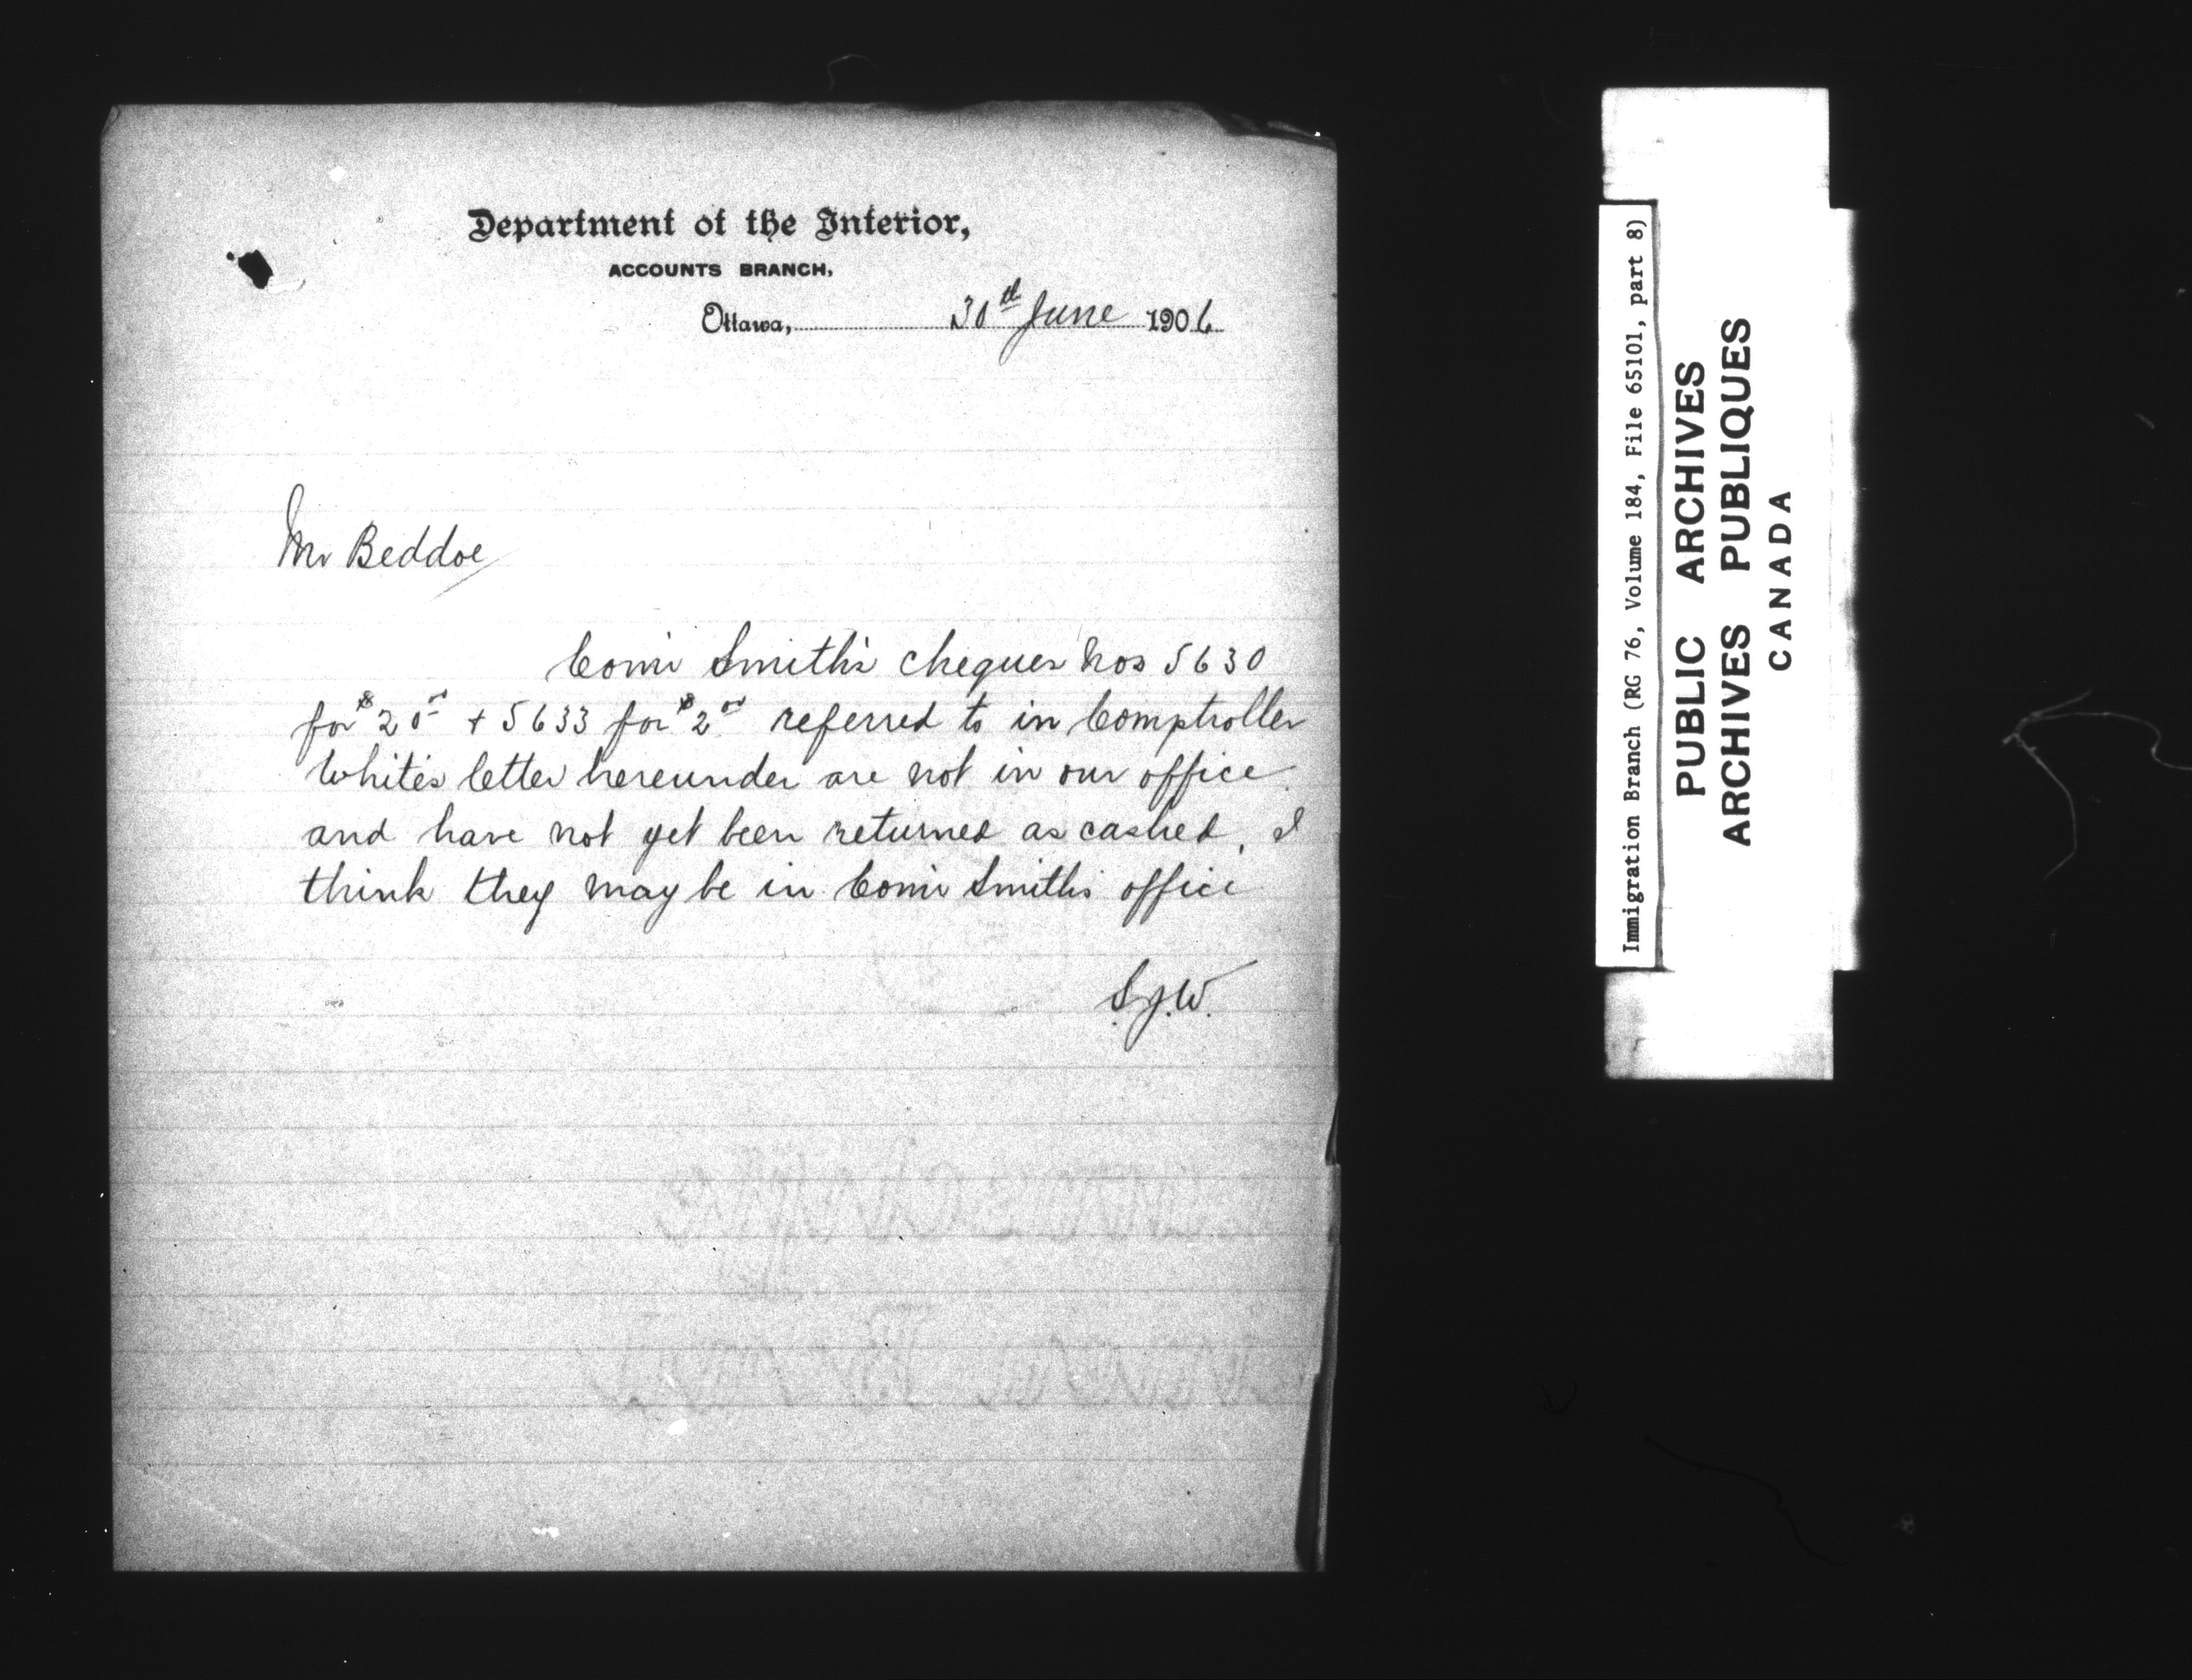 Department of the Interior,
ACCOUNTS BRANCH,
Ottawa, 30th June 1906
Mr Beddoe
Comr Smith's cheques Nos 5630
for $20 00 + 5633 for $2 00 referred to in Comptroller
White's letter hereunder are not in our office
and have not yet been returned as cashed, I
think they may be in Comr Smith's office
S.J.W.
Immigration Branch (RG 76, Volume 184, File 65101, part 8)
PUBLIC ARCHIVES
ARCHIVES PUBLIQUES
CANADA